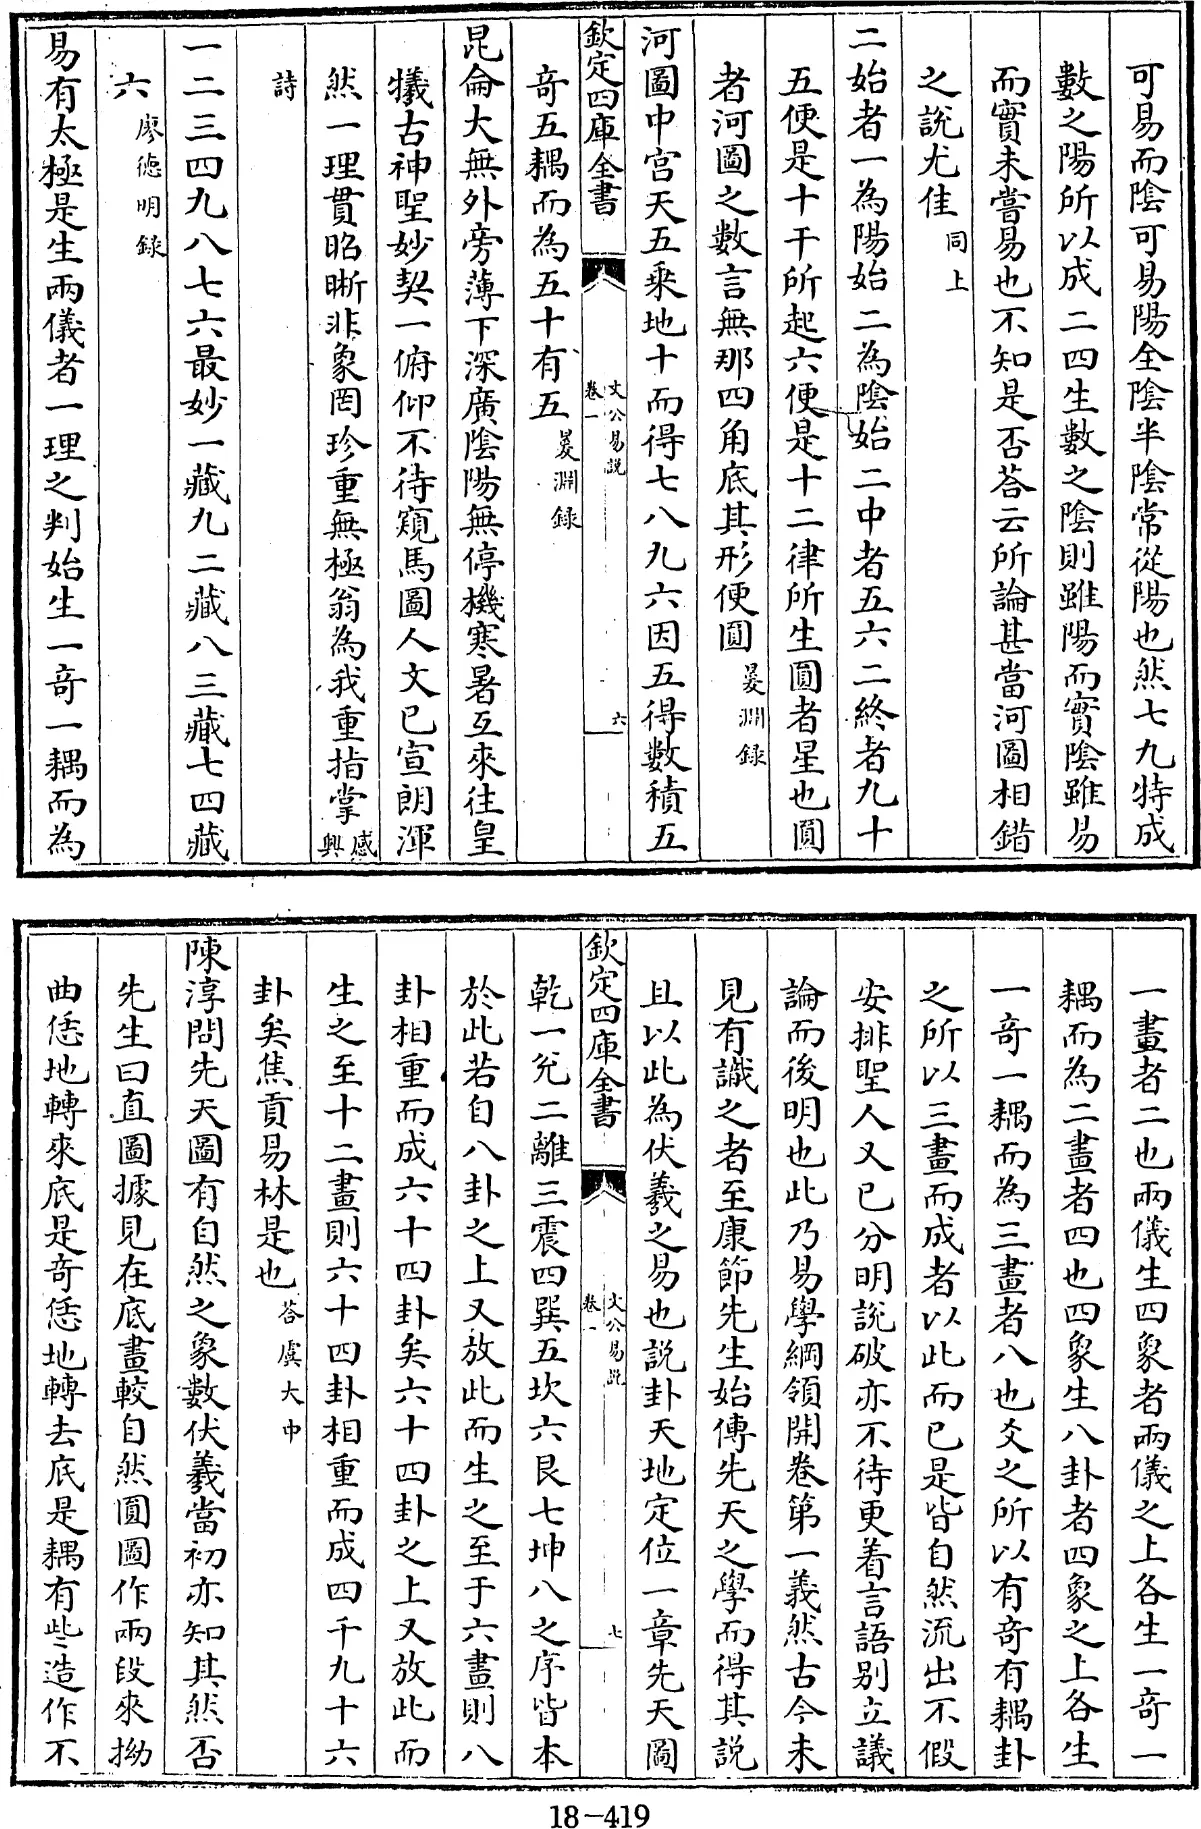 可易而陰可易陽全陰半陰常從陽也然七九特成
數之陽所以成二四生數之陰則雖陽而實陰雖易
而實未嘗易也不知是否荅云所論甚當河圖相錯
之說尤佳同上
二始者一為陽始二為陰始二中者五六二終者九十
五便是十干所起六便是十二律所生圓者星也圓
者河圖之數言無那四角底其形便圓㬊淵録
河圖中宫天五乘地十而得七八九六因五得數積五
欽定四庫全書
文公易說
卷一
六
奇五耦而為五十有五㬊淵録
昆侖大無外旁薄下深廣陰陽無停機寒暑互來往皇
犧古神聖妙契一俯仰不待窺馬圖人文已宣朗渾
然一理貫昭晰非象罔珍重無極翁為我重指掌感興
詩
一二三四九八七六最妙一藏九二藏八三藏七四藏
六廖德明録
易有太極是生兩儀者一理之判始生一奇一耦而為
一畫者二也兩儀生四象者兩儀之上各生一奇一
耦而為二畫者四也四象生八卦者四象之上各生
一奇一耦而為三畫者八也爻之所以有奇有耦卦
之所以三畫而成者以此而已是皆自然流出不假
安排聖人又已分明說破亦不待更着言語别立議
論而後明也此乃易學綱領開卷第一義然古今未
見有識之者至康節先生始傳先天之學而得其說
且以此為伏羲之易也說卦天地定位一章先天圖
欽定四庫全書
文公易說
卷一
七
乾一兌二離三震四巽五坎六艮七坤八之序皆本
於此若自八卦之上又放此而生之至于六畫則八
卦相重而成六十四卦矣六十四卦之上又放此而
生之至十二畫則六十四卦相重而成四千九十六
卦矣焦貢易林是也荅虞大中
陳淳問先天圖有自然之象數伏羲當初亦知其然否
先生曰直圖據見在底畫較自然圓圖作兩段來拗
曲恁地轉來底是奇恁地轉去底是耦有些造作不
18-419